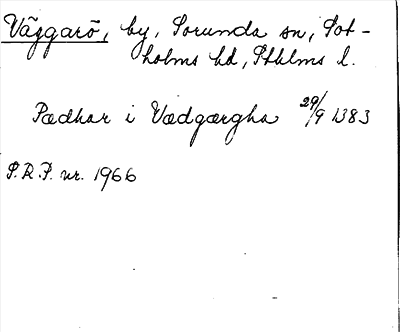 Väggarö, by, Sorunda sn, Sot-
holms hd, Sthlms l.
Pædhar i Vædgærgha 29/9 1383
S.R.P. nr. 1966